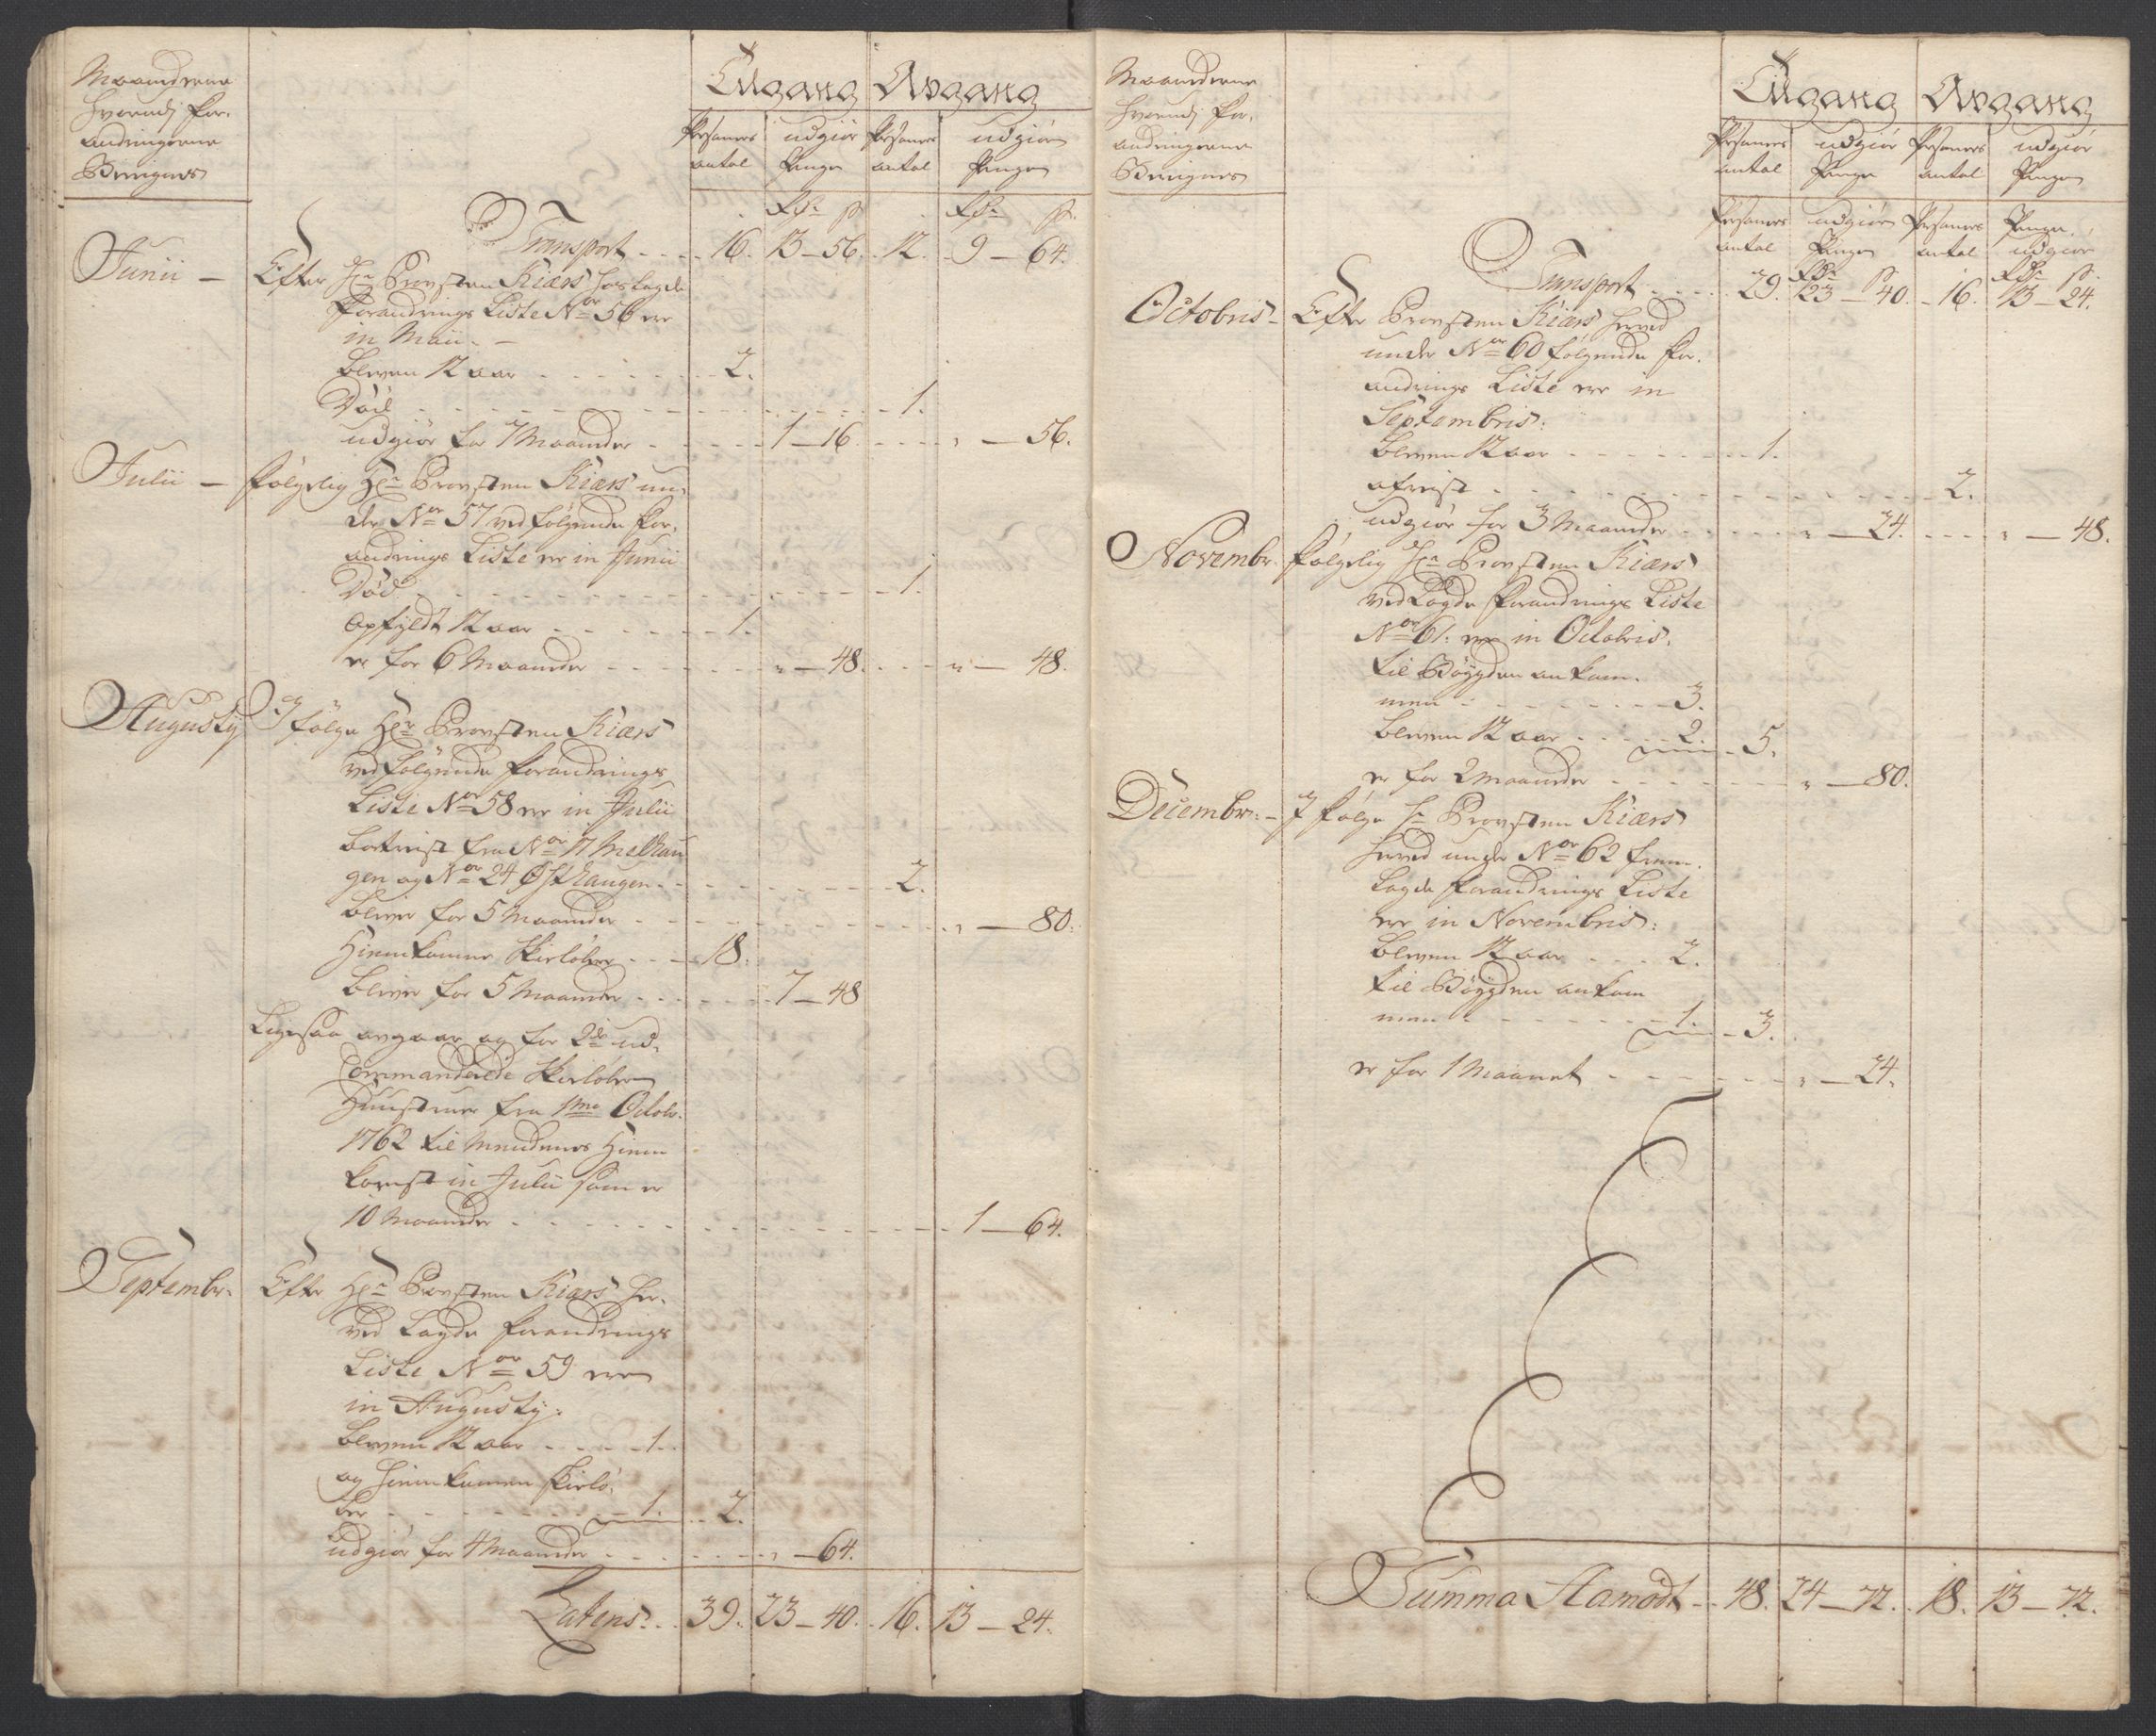 Maanederne
hvorudj For,
andringerne
Bevigners
Tilgang Avgang
Persohners antal
udgiør Penge
Persohners antal
udgiør Penge
Rdr ß Rdr ß
Transport - - - 16. 13 - 56. 12. 9 - 64.
Junii - Efter Hr Provsten Kiærs hoslagde
Forandrings Liste Nor 56 ere
in Maii. -
bleven 12 aar - - - 2.
Død - - - 1.
udgiør for 7 Maaneder - - - 1 - 16. - - - " - 56.
Julii - følgelig Hr Provsten Kiærs un,
der Nor 57 vedfølgende For,
andrings Liste er in Junii
Død - - - 1.
Opfyldt 12 aar - - - 1.
er for 6 Maaneder - - - " - 48. - - - " - 48.
Augusty J følge Hr Provsten Kiærs
vedfølgende Forandrings
Liste Nor 58 ere in Julii
bortreist fra Nor 17 Melhau
gen og Nor 24 Østhaugen - - - 2.
bliver for 5 Maaneder - - - " - 80.
Hiemkomne Skieløber - - - 18.
bliver for 5 Maaneder - - - 7 - 48
Ligesaa avgaar og for 2de ud,
Commanderede Skieløbere
Hustruer fra 1mo Octobr.
1762 til Mendenes Hiem
komst in Julii som er
10 Maaneder - - - 1 - 64.
Septembr. Efter Hr Provsten Kiærs her,
ved Lagde Forandrings
Liste Nor 59 ere
in Augusty:
bleven 12 aar - - - 1.
og hiemkommen Skielø,
ber - - - 1. - 2.
udgiør for 4 Maaneder - - - " - 64.
Latens - - 39. 23 - 40. 16. 13 - 24.
Maanederne
hvorudj For,
andringerne
Bevignes
Tilgang Avgang
Persohners antal
udgiør Penge
Persohners antal
udgiør Penge
Persohners antal
udgiør Penge
Persohners antal
Penge udgiør
Rdr ß Rdr ß
Transport - - - 29. 23 - 40. - 16. 13 - 24.
Octobris - Efter Provsten Kiærs herved
under Nor 60 følgende For,
andrings Liste ere in
Septembris:
bleven 12 aar - - - 1.
afreist - - - 2.
udgiør for 3 Maaneder - - - " - 24. - - - " - 48.
Novembr. følgelig Hr Provsten Kiærs
ved Lagde Forandrings Liste
Nor 61. ere in Octobris.
til Bøygden ankom,
men - - - 3.
bleven 12 aar - - - 2. - 5.
er for 2 Maaneder - - - " - 80.
Decembr: - J følge Hr Provsten Kiærs
herved under Nor 62 frem,
lagde Forandrings Liste
ere in Novembris:
bleven 12 aar - - - 2.
til Bøygden ankom
men - - - 1. - 3.
er for 1 Maanet - - - " - 24.
Summa Aamodt - - 48. 24 - 72. 18. 13 - 72.